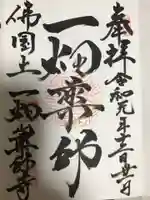 奉拝 令和元年十二月廿一日
一畑薬師
佛国土 一畑薬師寺